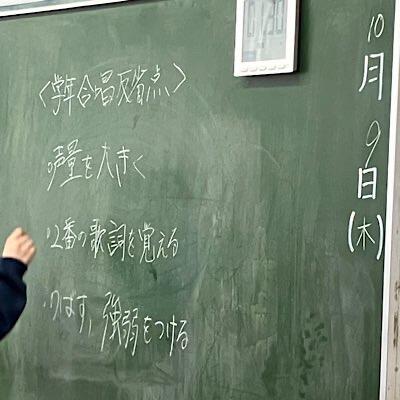 10月9日(木)
〈学年合唱反省点〉
・声量を大きく
・2番の歌詞を覚える
・のばす、強弱をつける